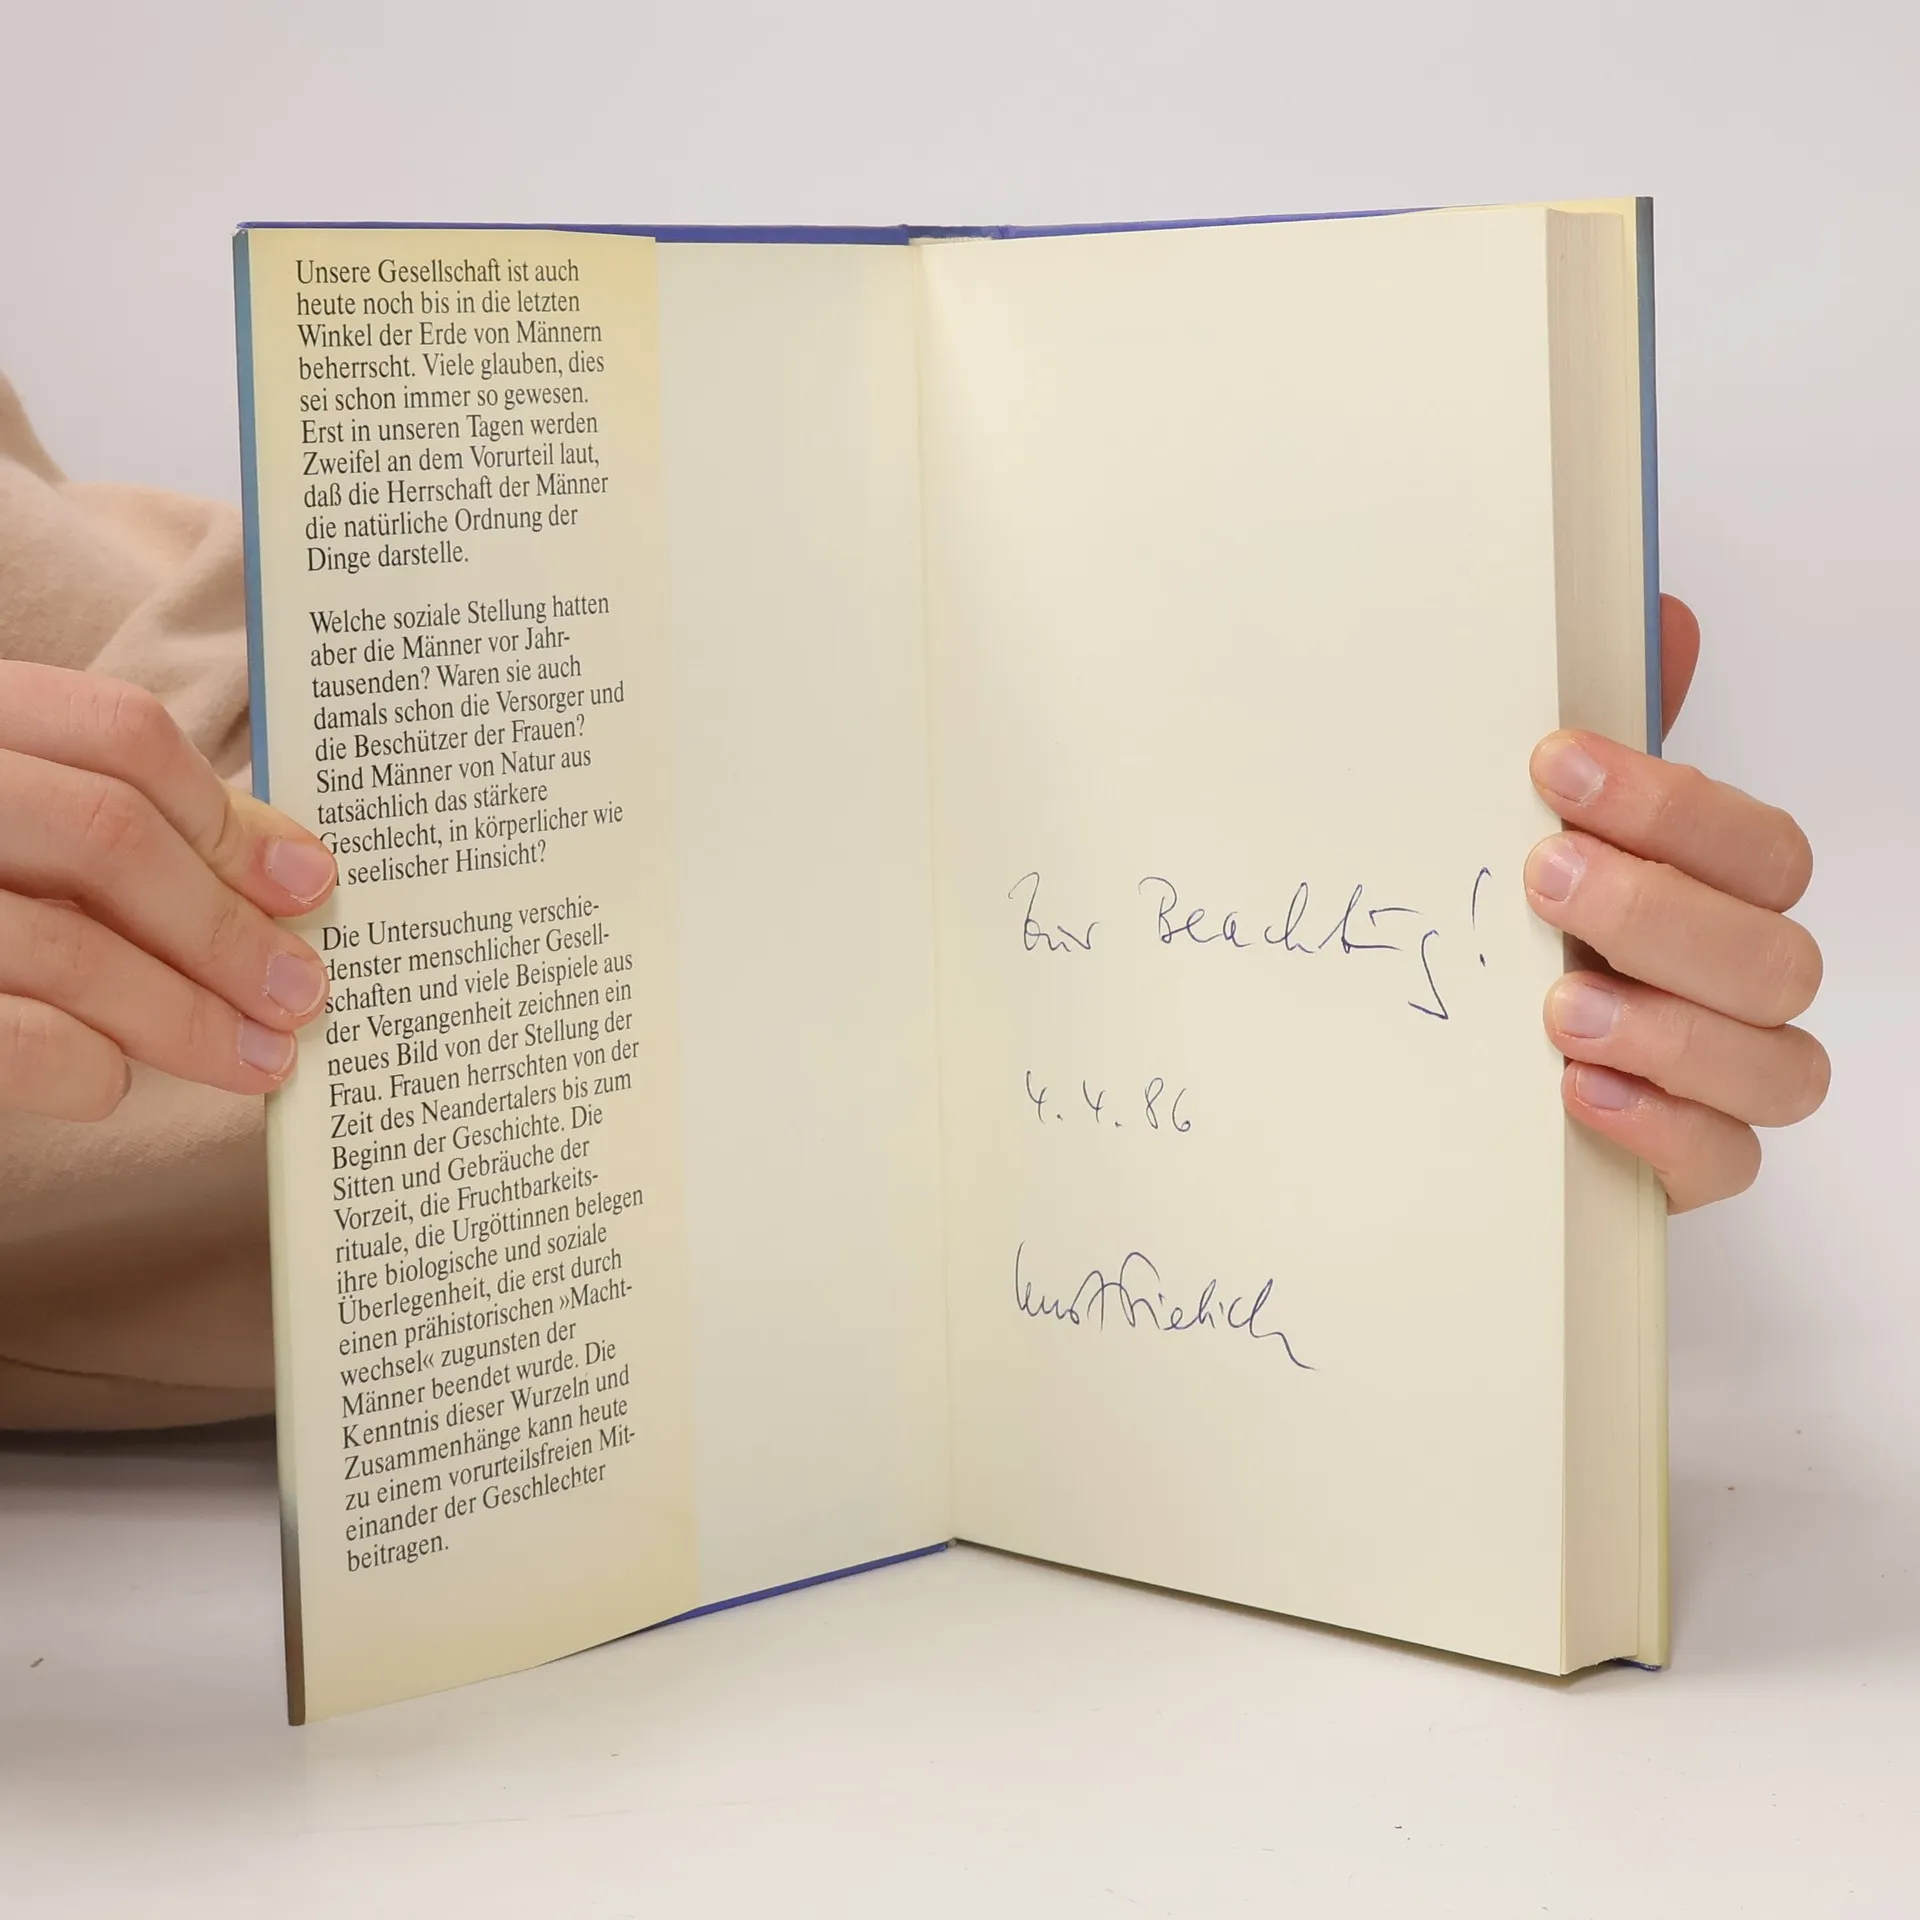 Unsere Gesellschaft ist auch
heute noch bis in die letzten
Winkel der Erde von Männern
beherrscht. Viele glauben, dies
sei schon immer so gewesen.
Erst in unseren Tagen werden
Zweifel an dem Vorurteil laut,
daß die Herrschaft der Männer
die natürliche Ordnung der
Dinge darstelle.
Welche soziale Stellung hatten
aber die Männer vor Jahr-
tausenden? Waren sie auch
damals schon die Versorger und
die Beschützer der Frauen?
Sind Männer von Natur aus
tatsächlich das stärkere
Geschlecht, in körperlicher wie
seelischer Hinsicht?
Die Untersuchung verschie-
denster menschlicher Gesell-
schaften und viele Beispiele aus
der Vergangenheit zeichnen ein
neues Bild von der Stellung der
Frau. Frauen herrschten von der
Zeit des Neandertalers bis zum
Beginn der Geschichte. Die
Sitten und Gebräuche der
Vorzeit, die Fruchtbarkeits-
rituale, die Urgöttinnen belegen
ihre biologische und soziale
Überlegenheit, die erst durch
einen prähistorischen »Macht-
wechsel« zugunsten der
Männer beendet wurde. Die
Kenntnis dieser Wurzeln und
Zusammenhänge kann heute
zu einem vorurteilsfreien Mit-
einander der Geschlechter
beitragen.
Zur Beachtung!
4.4.86